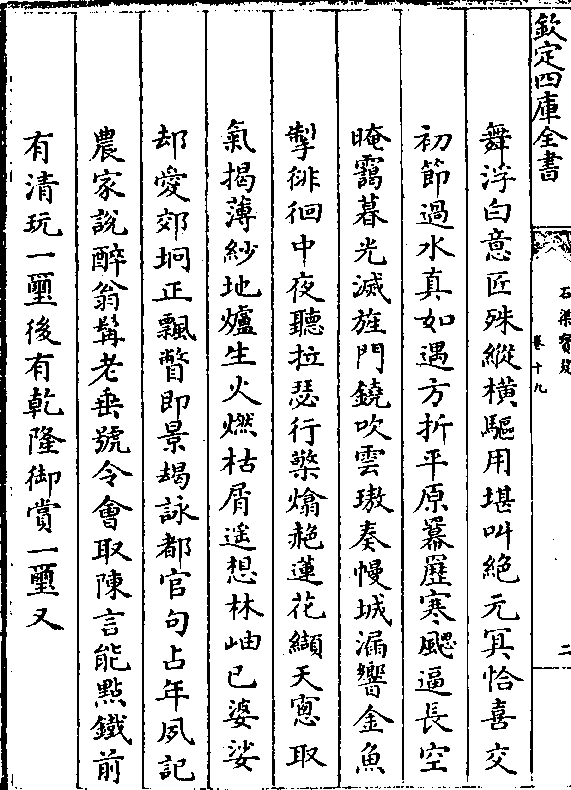 欽定四庫全書
石渠寳笈
卷十九
二
舞浮白意匠殊縱横驅用堪叫絶元冥恰喜交
初節過水真如遇方折平原羃䍥寒颸逼長空
晻靄暮光滅旌門鐃吹雲璈奏幔城漏響金魚
掣徘徊中夜聽拉瑟行檠熻赩蓮花纈天窻取
氣揭薄紗地爐生火燃枯屑遥想林岫已婆娑
却愛郊坰正飄瞥即景朅詠都官句占年夙記
農家説醉翁髯老垂號令會取陳言能㸃鐵前
有清玩一璽後有乾隆御賞一璽又